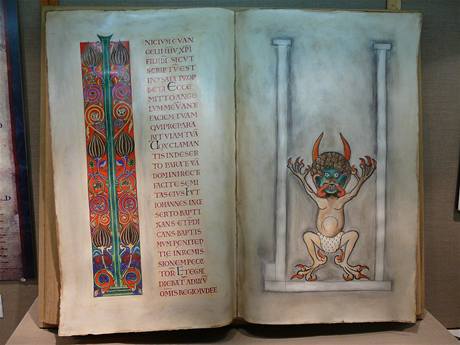 NICIUM EVAN
GELII IHU XPI
FILII DI SICUT
SCRIPTŪ EST
IN ISAIA PRO
PHETA Ecce
MITTO ANGE
LUM MEŪ ANTE
FACIEM TUAM
QUI PREPARA
BIT VIAM TUĀ
Vox CLAMAN
TIS IN DESER
TO PARATE VIĀ
DOMINI RECT
FACITE SEMI
TAS EIUS
IOHANNES IN DE
SERTO BAPTI
ZANS ET PDI
CANS BAPTIS
MUM PENITEN
TIE IN REMIS
SIONEM PECCA
TOR Et EGRE
DIEBAT AD ILLŪ
OMIS REGIO IUDEE